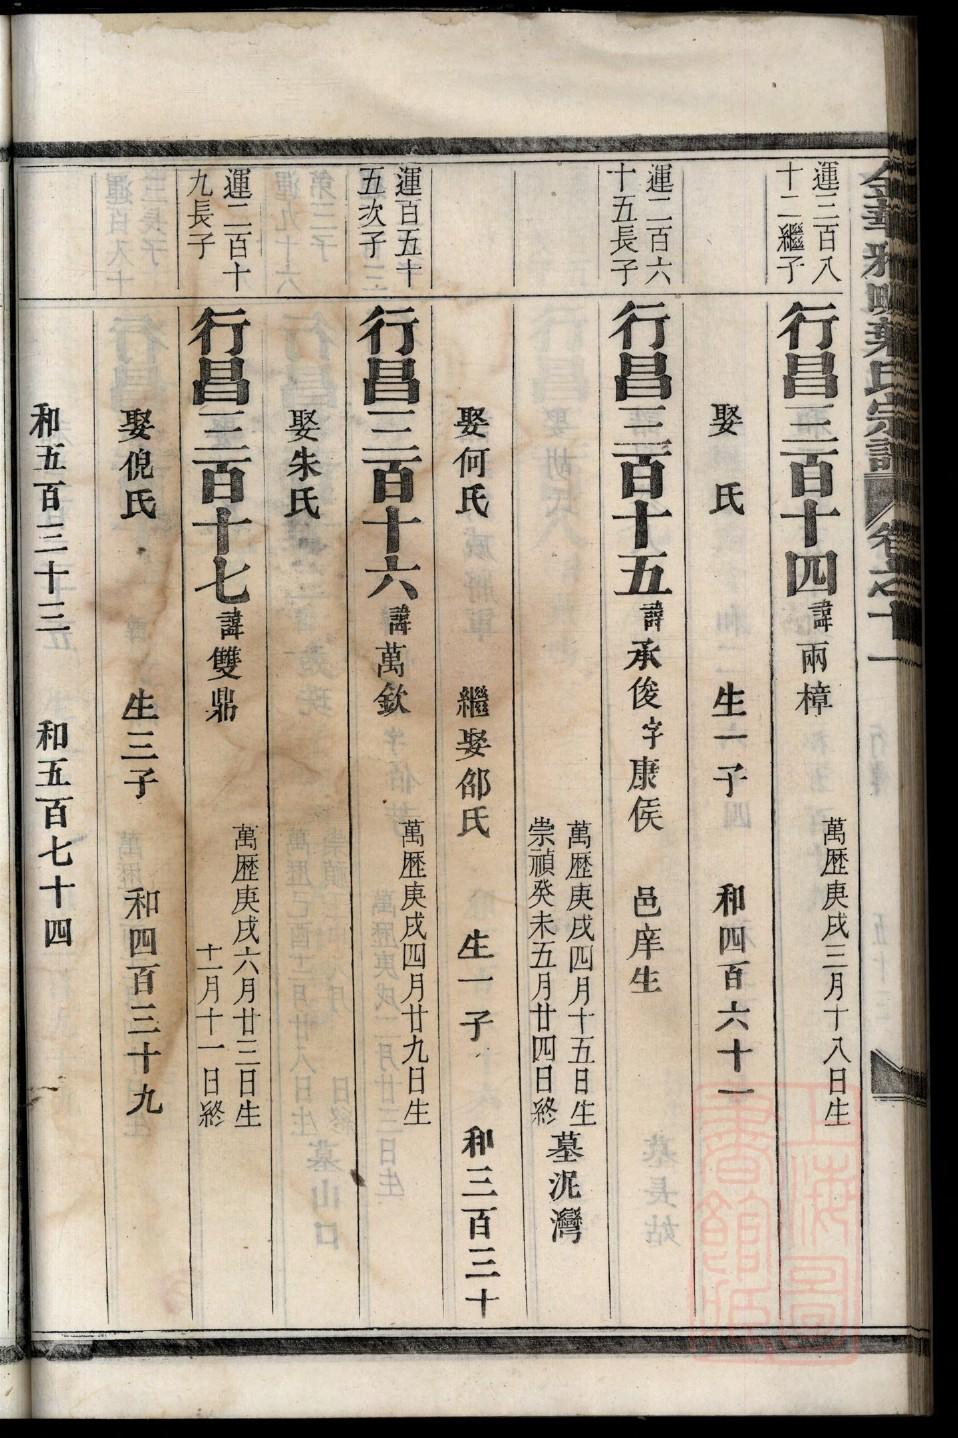 金華雅畈葉氏宗譜 卷之十一
運三百八十二繼子
行昌三百十四 諱兩樟 萬歷庚戌三月十八日生
娶 氏 生一子 和四百六十一
運二百六十五長子
行昌三百十五 諱承俊字康侯 邑庠生
萬歷庚戌四月十五日生
崇禎癸未五月廿四日終 墓泥灣
娶何氏 繼娶邵氏 生一子 和三百三十
運百五十五次子
行昌三百十六 諱萬欽 萬歷庚戌四月廿九日生
娶朱氏
運二百十九長子
行昌三百十七 諱雙鼎 萬歷庚戌六月廿三日生
十一月十一日終
娶倪氏 生三子 和四百三十九
和五百三十三 和五百七十四